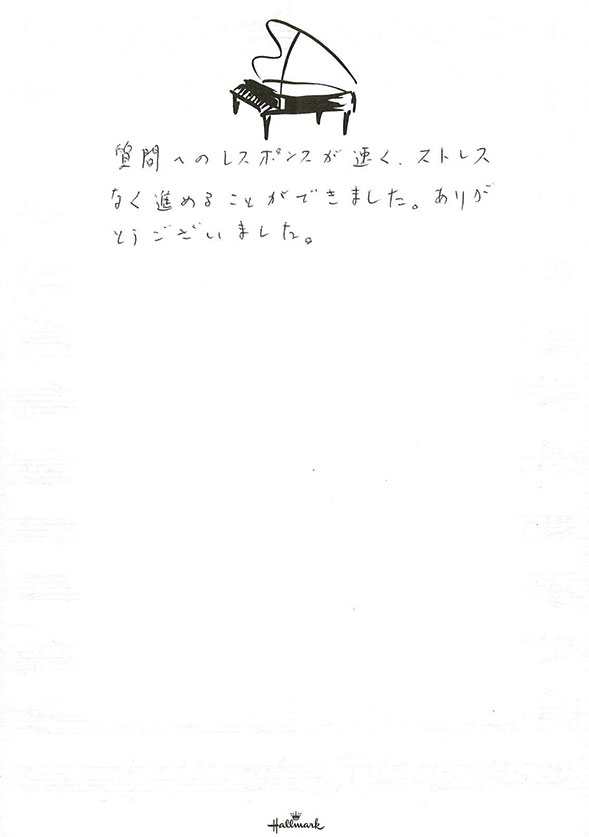 質問へのレスポンスが速く、ストレス
なく進めることができました。ありが
とうございました。
Hallmark